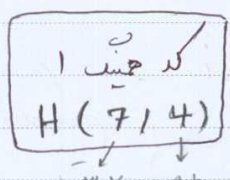 کد همینگ ۱
H ( 7 , 4 )